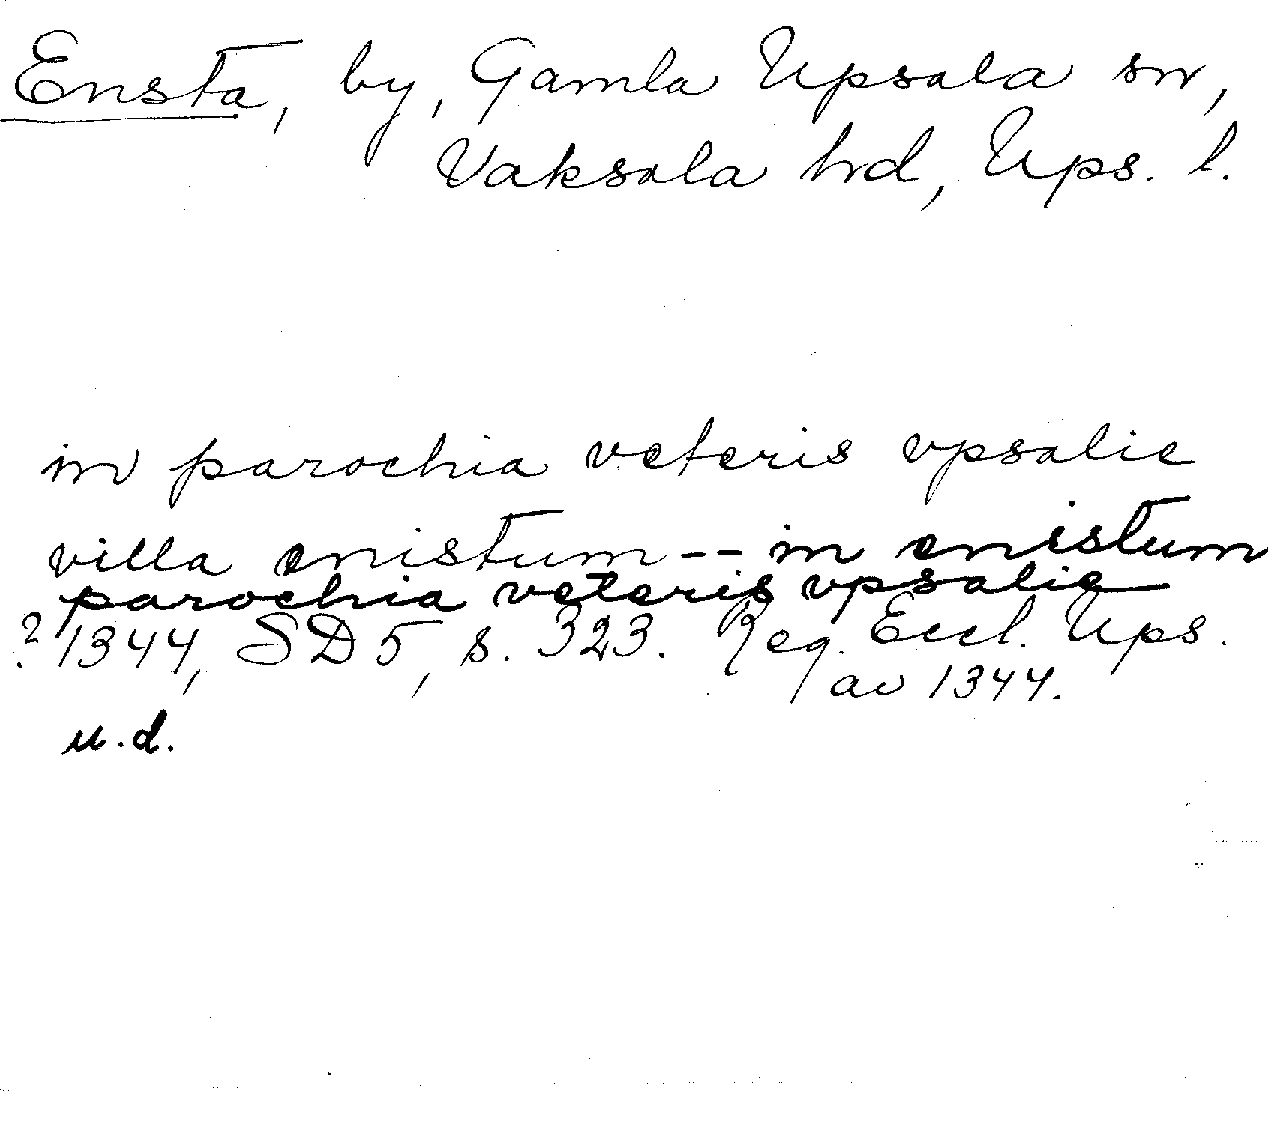 Ensta, by, Gamla Upsala sn,
Vaksala hd, Ups. l.
in parochia veteris vpsalie
villa enistum -- in enistum
parochia veteris vpsalie
? 1344, SD 5, s. 323. Reg. Eccl. Ups.
av 1344.
u.d.